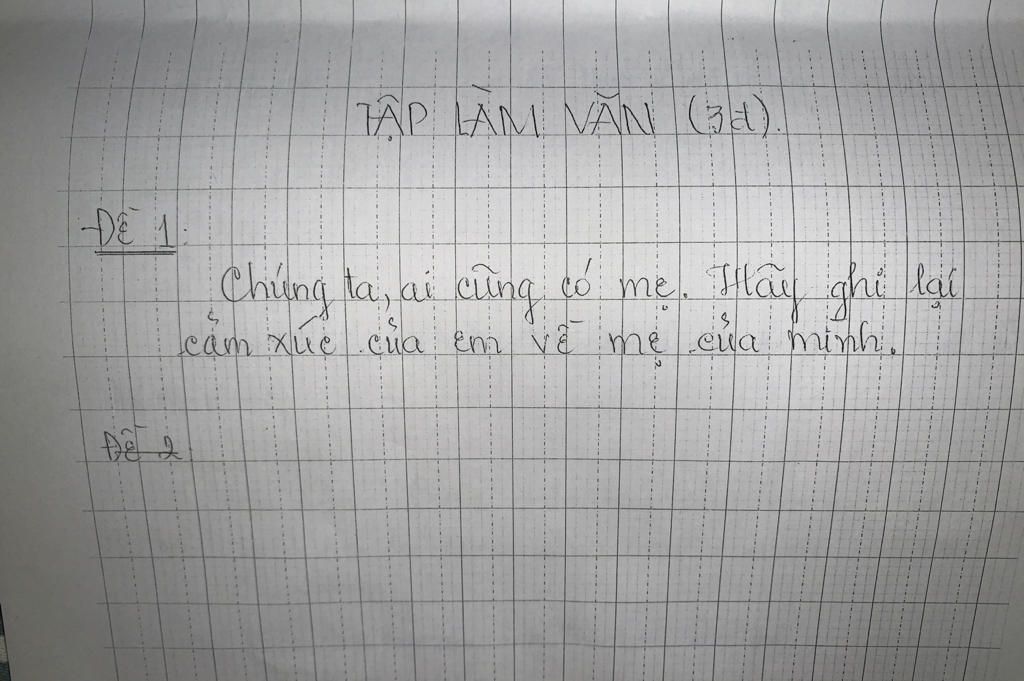 TẬP LÀM VĂN (3đ).
Đề 1:
Chúng ta, ai cũng có mẹ. Hãy ghi lại
cảm xúc của em về mẹ của mình.
Đề 2